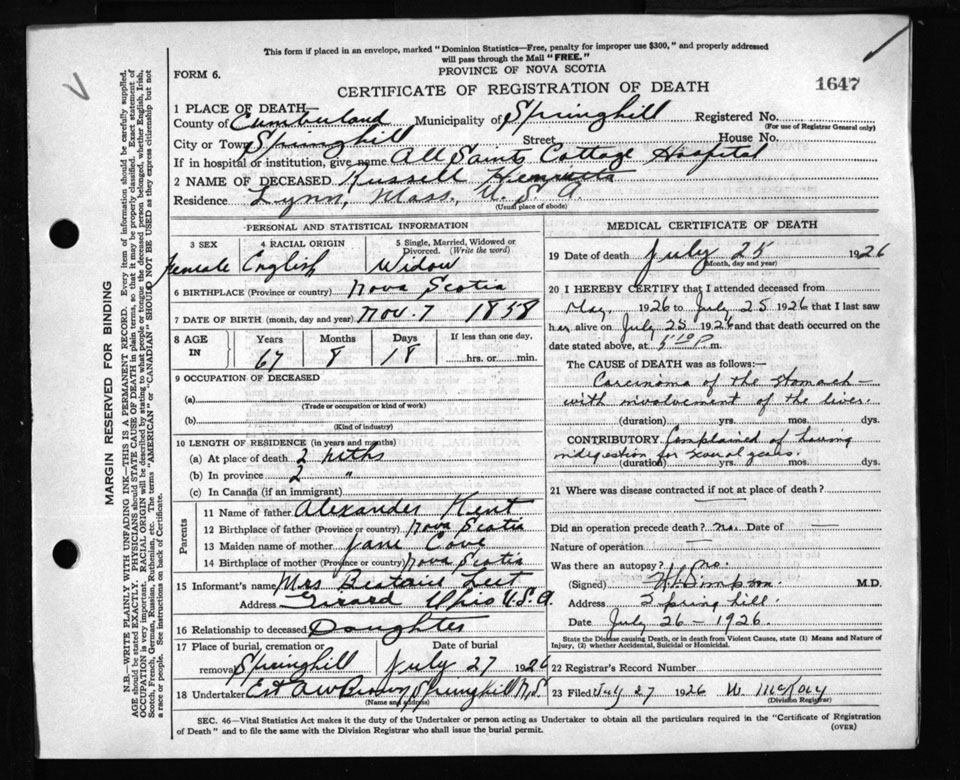 This form if placed in an envelope, marked "Dominion Statistics—Free, penalty for improper use $300," and properly addressed
will pass through the Mail "FREE."
PROVINCE OF NOVA SCOTIA
FORM 6.
CERTIFICATE OF REGISTRATION OF DEATH
1647
1 PLACE OF DEATH—
County of Cumberland Municipality of Springhill Registered No.
(For use of Registrar General only)
City or Town Springhill Street House No.
If in hospital or institution, give name All Saints Cottage Hospital
2 NAME OF DECEASED Russell Henrietta
Residence Lynn, Mass., U.S.A.
(Usual place of abode)
PERSONAL AND STATISTICAL INFORMATION
3 SEX 4 RACIAL ORIGIN 5 Single, Married, Widowed or Divorced. (Write the word)
Female English Widow
6 BIRTHPLACE (Province or country) Nova Scotia
7 DATE OF BIRTH (month, day and year) Nov. 7 1858
8 AGE IN Years Months Days If less than one day,
67 8 18 hrs. or min.
9 OCCUPATION OF DECEASED
(a)
(Trade or occupation or kind of work)
(b)
(Kind of industry)
10 LENGTH OF RESIDENCE (in years and months)
(a) At place of death 2 mths
(b) In province 2 "
(c) In Canada (if an immigrant)
Parents
11 Name of father Alexander Kent
12 Birthplace of father (Province or country) Nova Scotia
13 Maiden name of mother Jane Cove
14 Birthplace of mother (Province or country) Nova Scotia
15 Informant's name Mrs Beatrice
Address Girard Ohio U.S.A.
16 Relationship to deceased Daughter
17 Place of burial, cremation or Date of burial
removal Springhill July 27 1926
18 Undertaker Est A W Brown Springhill N.S.
(Name and address)
MEDICAL CERTIFICATE OF DEATH
19 Date of death July 25 1926
(Month, day and year)
20 I HEREBY CERTIFY that I attended deceased from
May, 1926 to July 25 1926 that I last saw
her alive on July 25 1926 and that death occurred on the
date stated above, at 5 10 P. m.
The CAUSE OF DEATH was as follows:—
Carcinoma of the stomach—
with involvement of the liver.
(duration) yrs. mos. dys.
CONTRIBUTORY Complained of having
indigestion for several years.
(duration) yrs. mos. dys.
21 Where was disease contracted if not at place of death?
—
Did an operation precede death? no. Date of —
Nature of operation —
Was there an autopsy? no.
(Signed) Simpson M.D.
Address Springhill.
Date July 26—1926.
State the Disease causing Death, or in death from Violent Causes, state (1) Means and Nature of
Injury, (2) whether Accidental, Suicidal or Homicidal.
22 Registrar's Record Number
23 Filed July 27 1926 W. McKoey
(Division Registrar)
SEC. 46—Vital Statistics Act makes it the duty of the Undertaker or person acting as Undertaker to obtain all the particulars required in the "Certificate of Registration
of Death" and to file the same with the Division Registrar who shall issue the burial permit.
(OVER)
MARGIN RESERVED FOR BINDING
N.B.—WRITE PLAINLY WITH UNFADING INK—THIS IS A PERMANENT RECORD. Every item of information should be carefully supplied.
AGE should be stated EXACTLY. PHYSICIANS should STATE CAUSE OF DEATH in plain terms, so that it may be properly classified. Exact statement of
OCCUPATION is very important. RACIAL ORIGIN will be described by stating to what people or tongue the deceased person belonged, whether English, Irish,
Scotch, French, German, Russian, Ruthenian, etc. The terms "AMERICAN" or "CANADIAN" SHOULD NOT BE USED as they express citizenship but not
a race or people. See instructions on back of Certificate.